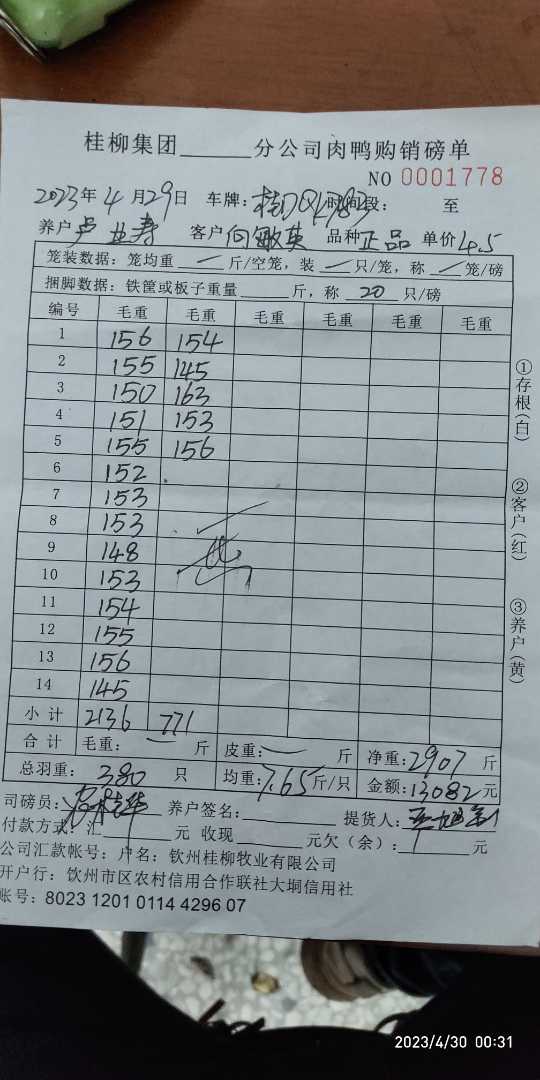 桂柳集团______分公司肉鸭购销磅单
NO 0001778
2023年4月29日 车牌: 时间段: 至
养户 卢业寿 客户 向敏英 品种 正品 单价 4.5
笼装数据: 笼均重 — 斤/空笼, 装 — 只/笼, 称 — 笼/磅
捆脚数据: 铁筐或板子重量____斤, 称 20 只/磅
编号 毛重 毛重 毛重 毛重 毛重 毛重
1 156 154
2 155 145
3 150 163
4 151 153
5 155 156
6 152
7 153
8 153
9 148
10 153
11 154
12 155
13 156
14 145
小计 2136 771
合计 毛重: — 斤 皮重: — 斤 净重: 2907 斤
总羽重: 380 只 均重: 7.65 斤/只 金额: 13082 元
司磅员: 养户签名: 提货人:
付款方式: 汇______元 收现______元欠(余): ______元
公司汇款帐号: 户名: 钦州桂柳牧业有限公司
开户行: 钦州市区农村信用合作联社大垌信用社
账号: 8023 1201 0114 4296 07
①存根(白)
②客户(红)
③养户(黄)
2023/4/30 00:31